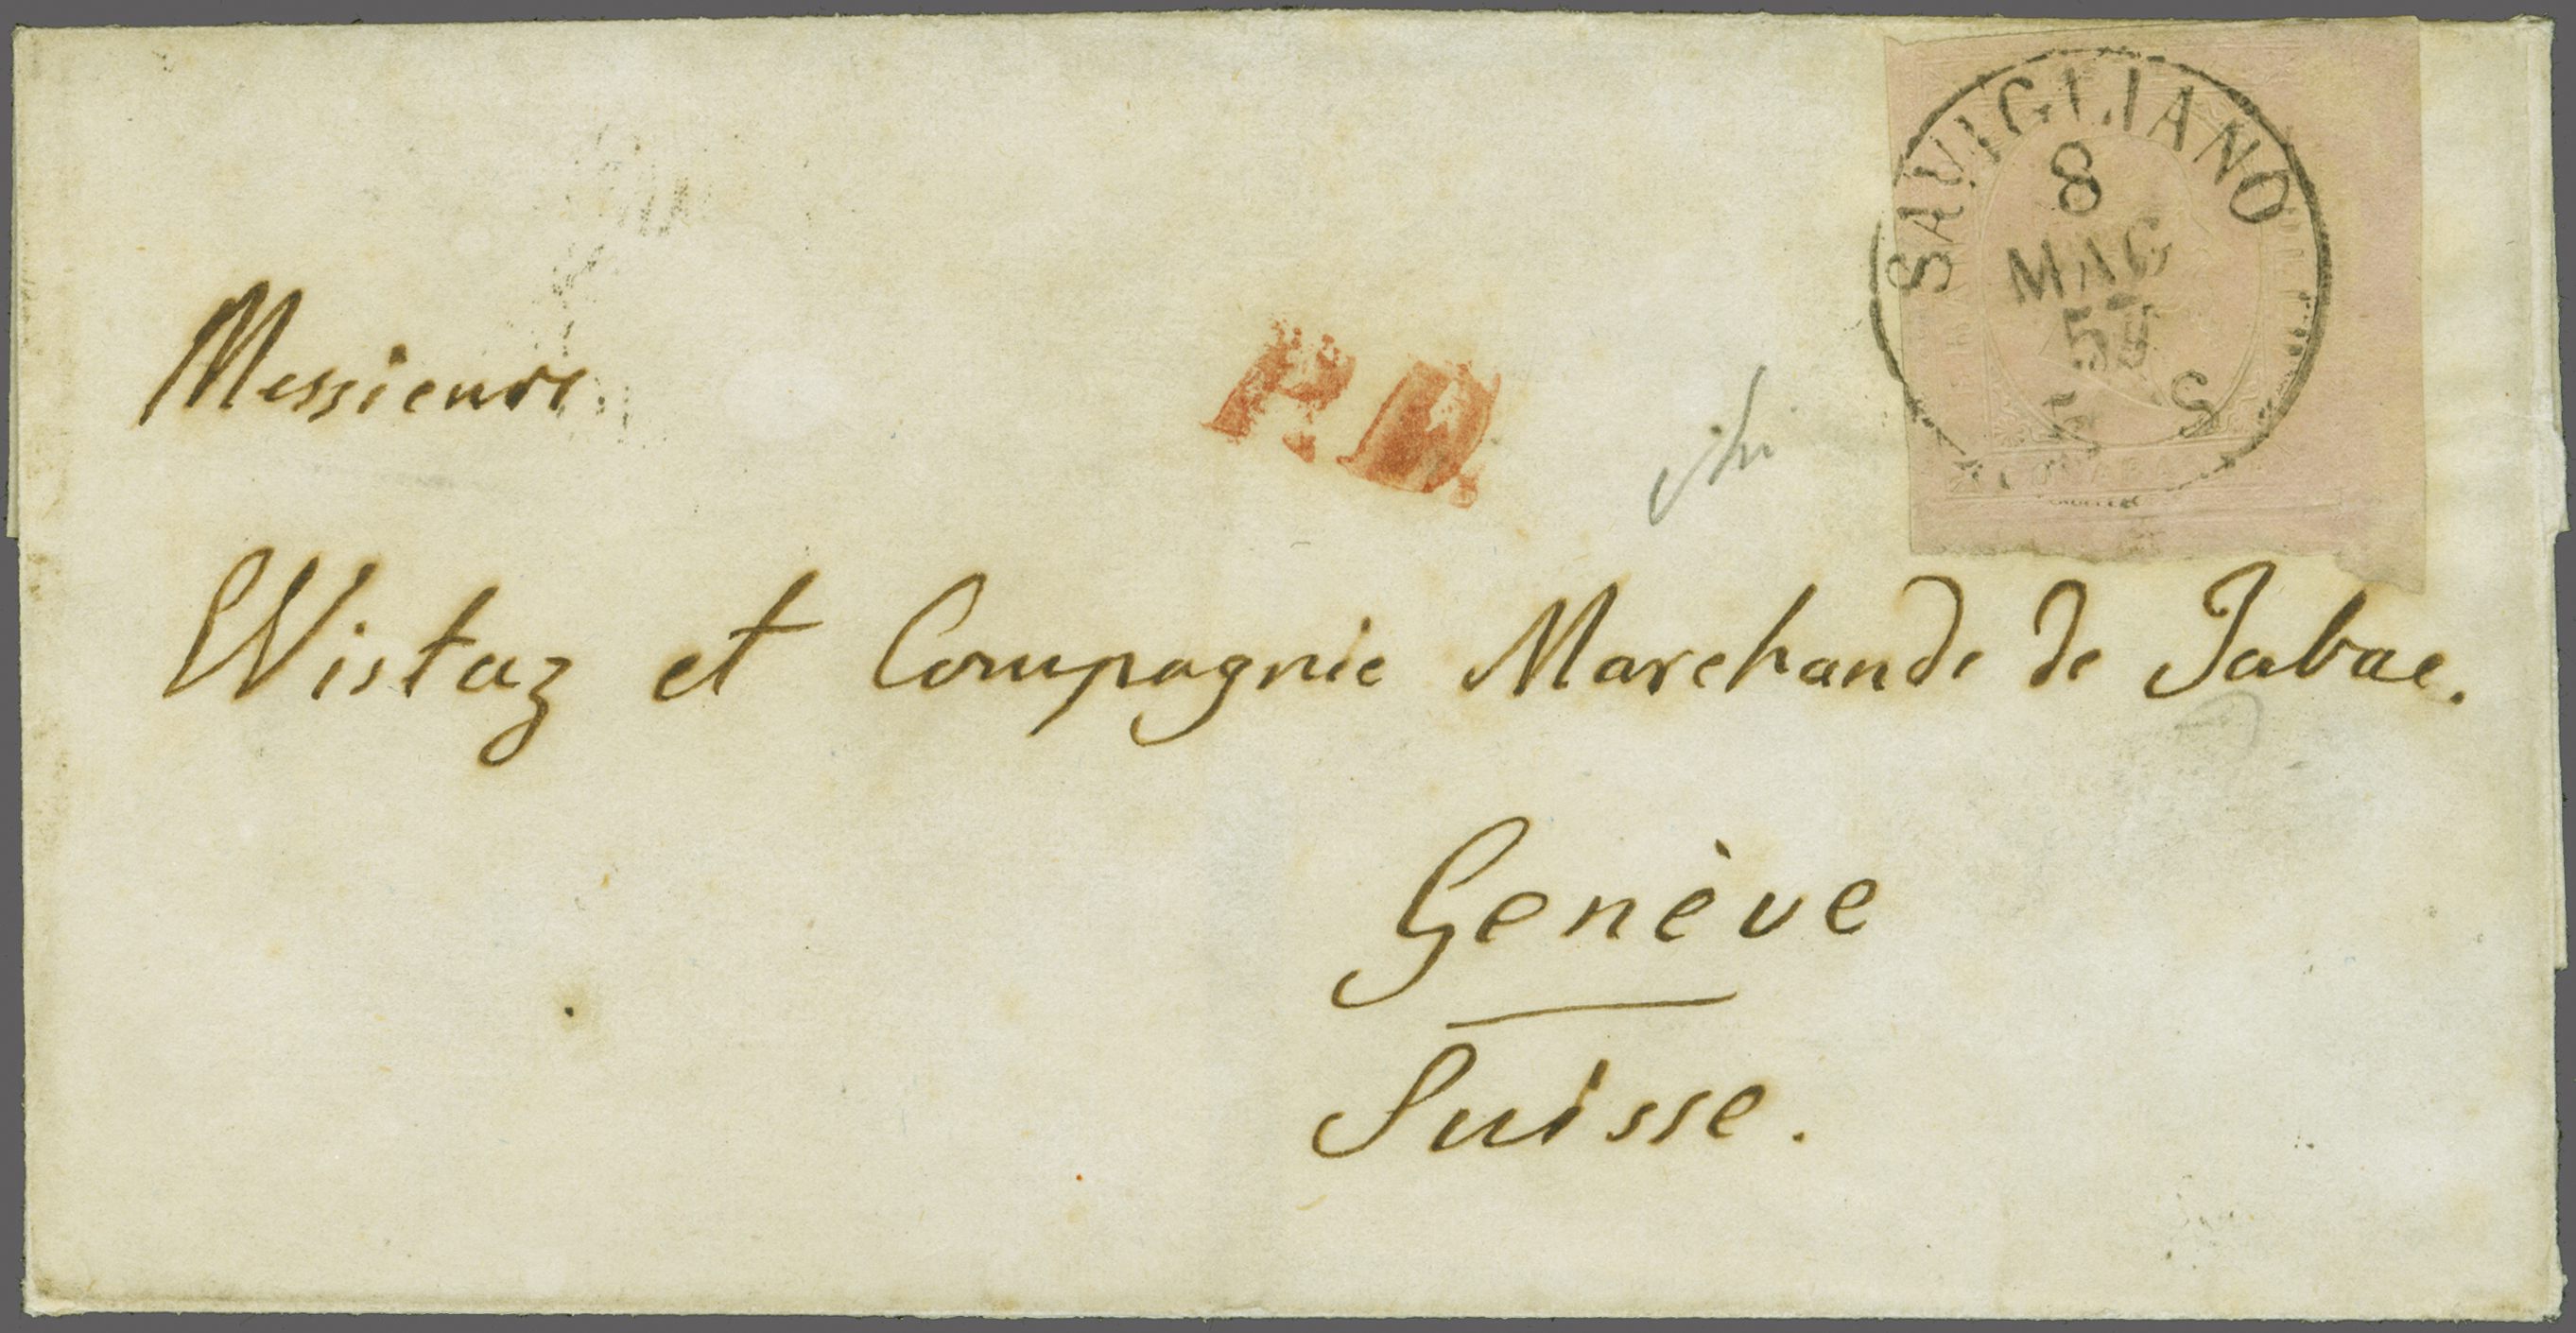 SAVIGLIANO
8
MAG
5
S
P.D.
Messieurs
Wistaz et Compagnie Marchands de Tabac.
Genève
Suisse.